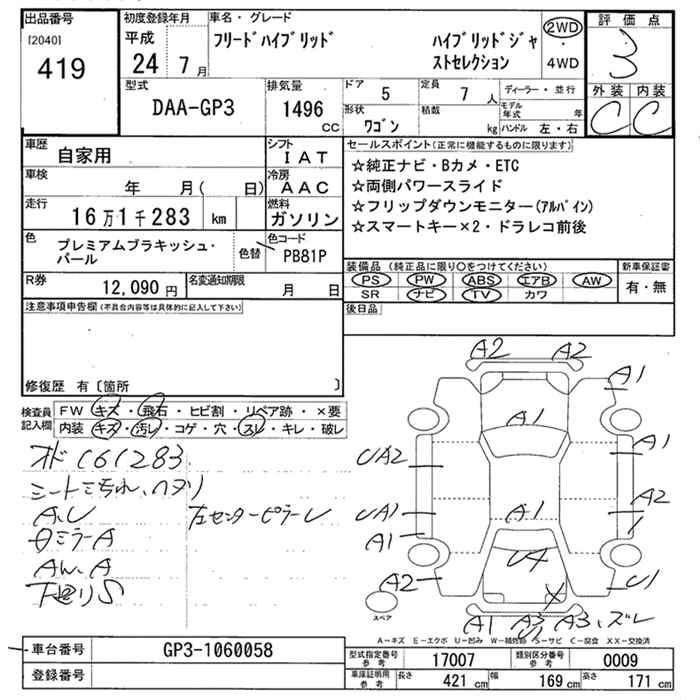 出品番号
[2040]
419
初度登録年月
平成
24 7 月
車名・グレード
フリードハイブリッド ハイブリッドジャストセレクション
2WD
・
4WD
評価点
3
外装 内装
C C
型式
DAA-GP3
排気量
1496
CC
ドア 5
形状
ワゴン
定員 7 人
積載 kg
ディーラー・並行
モデル年式 年
ハンドル 左・右
車歴
自家用
車検
年 月( 日)
走行
16万1千283 km
色
プレミアムブラキッシュ・パール
色替
シフト
IAT
冷房
AAC
燃料
ガソリン
色コード
PB81P
R券 12,090 円
名変通知期限
月 日
セールスポイント(正常に機能するものに限ります)
☆純正ナビ・Bカメ・ETC
☆両側パワースライド
☆フリップダウンモニター(アルパイン)
☆スマートキー×2・ドラレコ前後
装備品 (純正品に限り○をつけてください)
PS PW ABS エアB AW
SR ナビ TV カワ
新車保証書
有・無
後日品
注意事項申告欄(不具合内容等は具体的に記入して下さい)
修復歴 有〔箇所 〕
検査員記入欄
FW キズ・飛石・ヒビ割・リペア跡・×要
内装 キズ・汚レ・コゲ・穴・スレ・キレ・破レ
オド161283
シートこちれ、ヘタリ
A,U 左センターピラーU
Dミラー A
AW,A
下廻りS
A2 A2
A1
A1
UA2 A1
A2
UA1 A1
A1 1
U4
A2 U1
X
A1 A3 A3、ズレ
U
スペア
A-キズ E-エクボ U-凹み W-補修跡 S-サビ C-腐食 XX-交換済
車台番号 GP3-1060058
登録番号
型式指定番号 参考 17007
類別区分番号 参考 0009
車庫証明用 参考 長さ 421 cm 幅 169 cm 高さ 171 cm